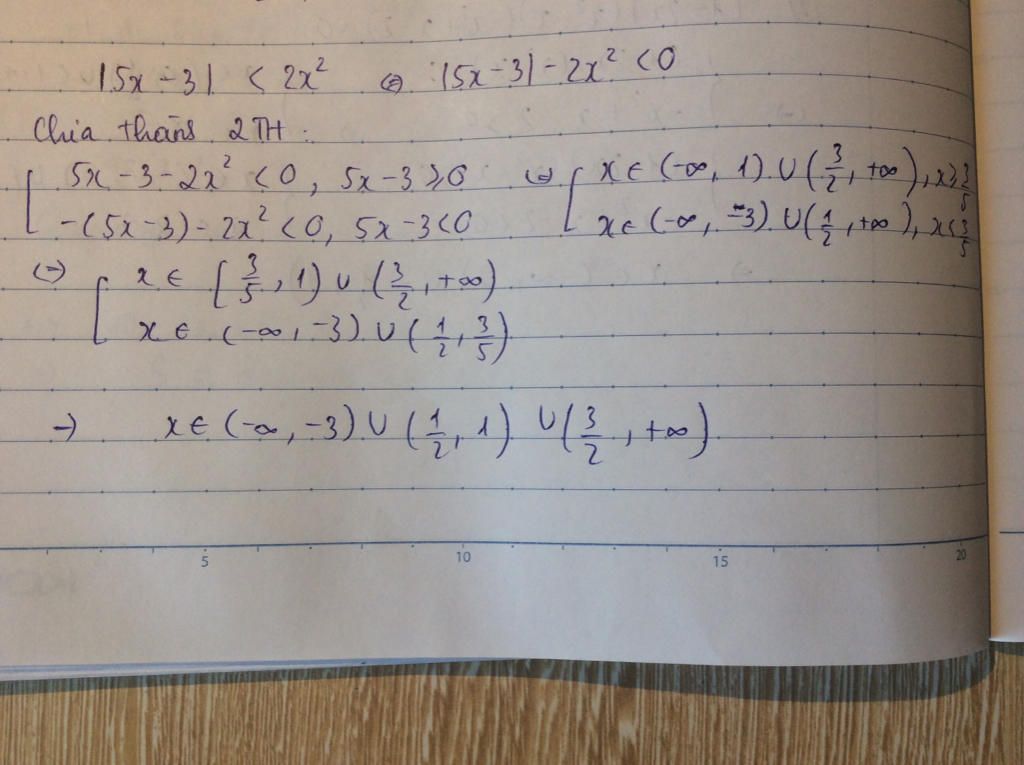 |5x-3| < 2x² ⇔ |5x-3|-2x² < 0
Chia thành 2TH:
[ 5x-3-2x² < 0, 5x-3 ⩾ 0 ⇔ [ x ∈ (-∞, 1) ∪ (3/2, +∞), x ⩾ 3/5
-(5x-3)-2x² < 0, 5x-3 < 0 x ∈ (-∞, -3) ∪ (1/2, +∞), x < 3/5
⇔ [ x ∈ [3/5, 1) ∪ (3/2, +∞)
x ∈ (-∞, -3) ∪ (1/2, 3/5)
→ x ∈ (-∞, -3) ∪ (1/2, 1) ∪ (3/2, +∞)
5 10 15 20